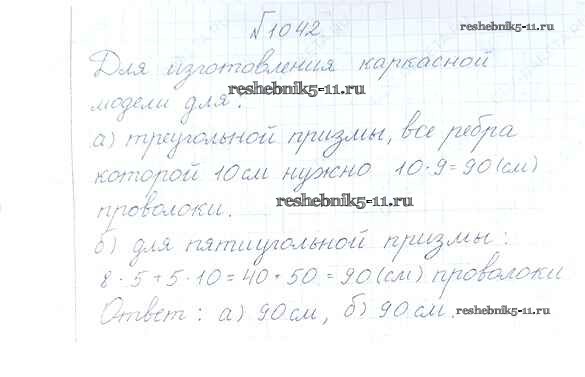 №1042
reshebnik5-11.ru
Для изготовления каркасной
reshebnik5-11.ru
модели для:
а) треугольной призмы, все ребра
которой 10 см нужно 10·9=90(см)
reshebnik5-11.ru
проволоки.
б) для пятиугольной призмы:
8·5+5·10=40+50=90(см) проволоки
Ответ: а) 90см, б) 90см.
reshebnik5-11.ru